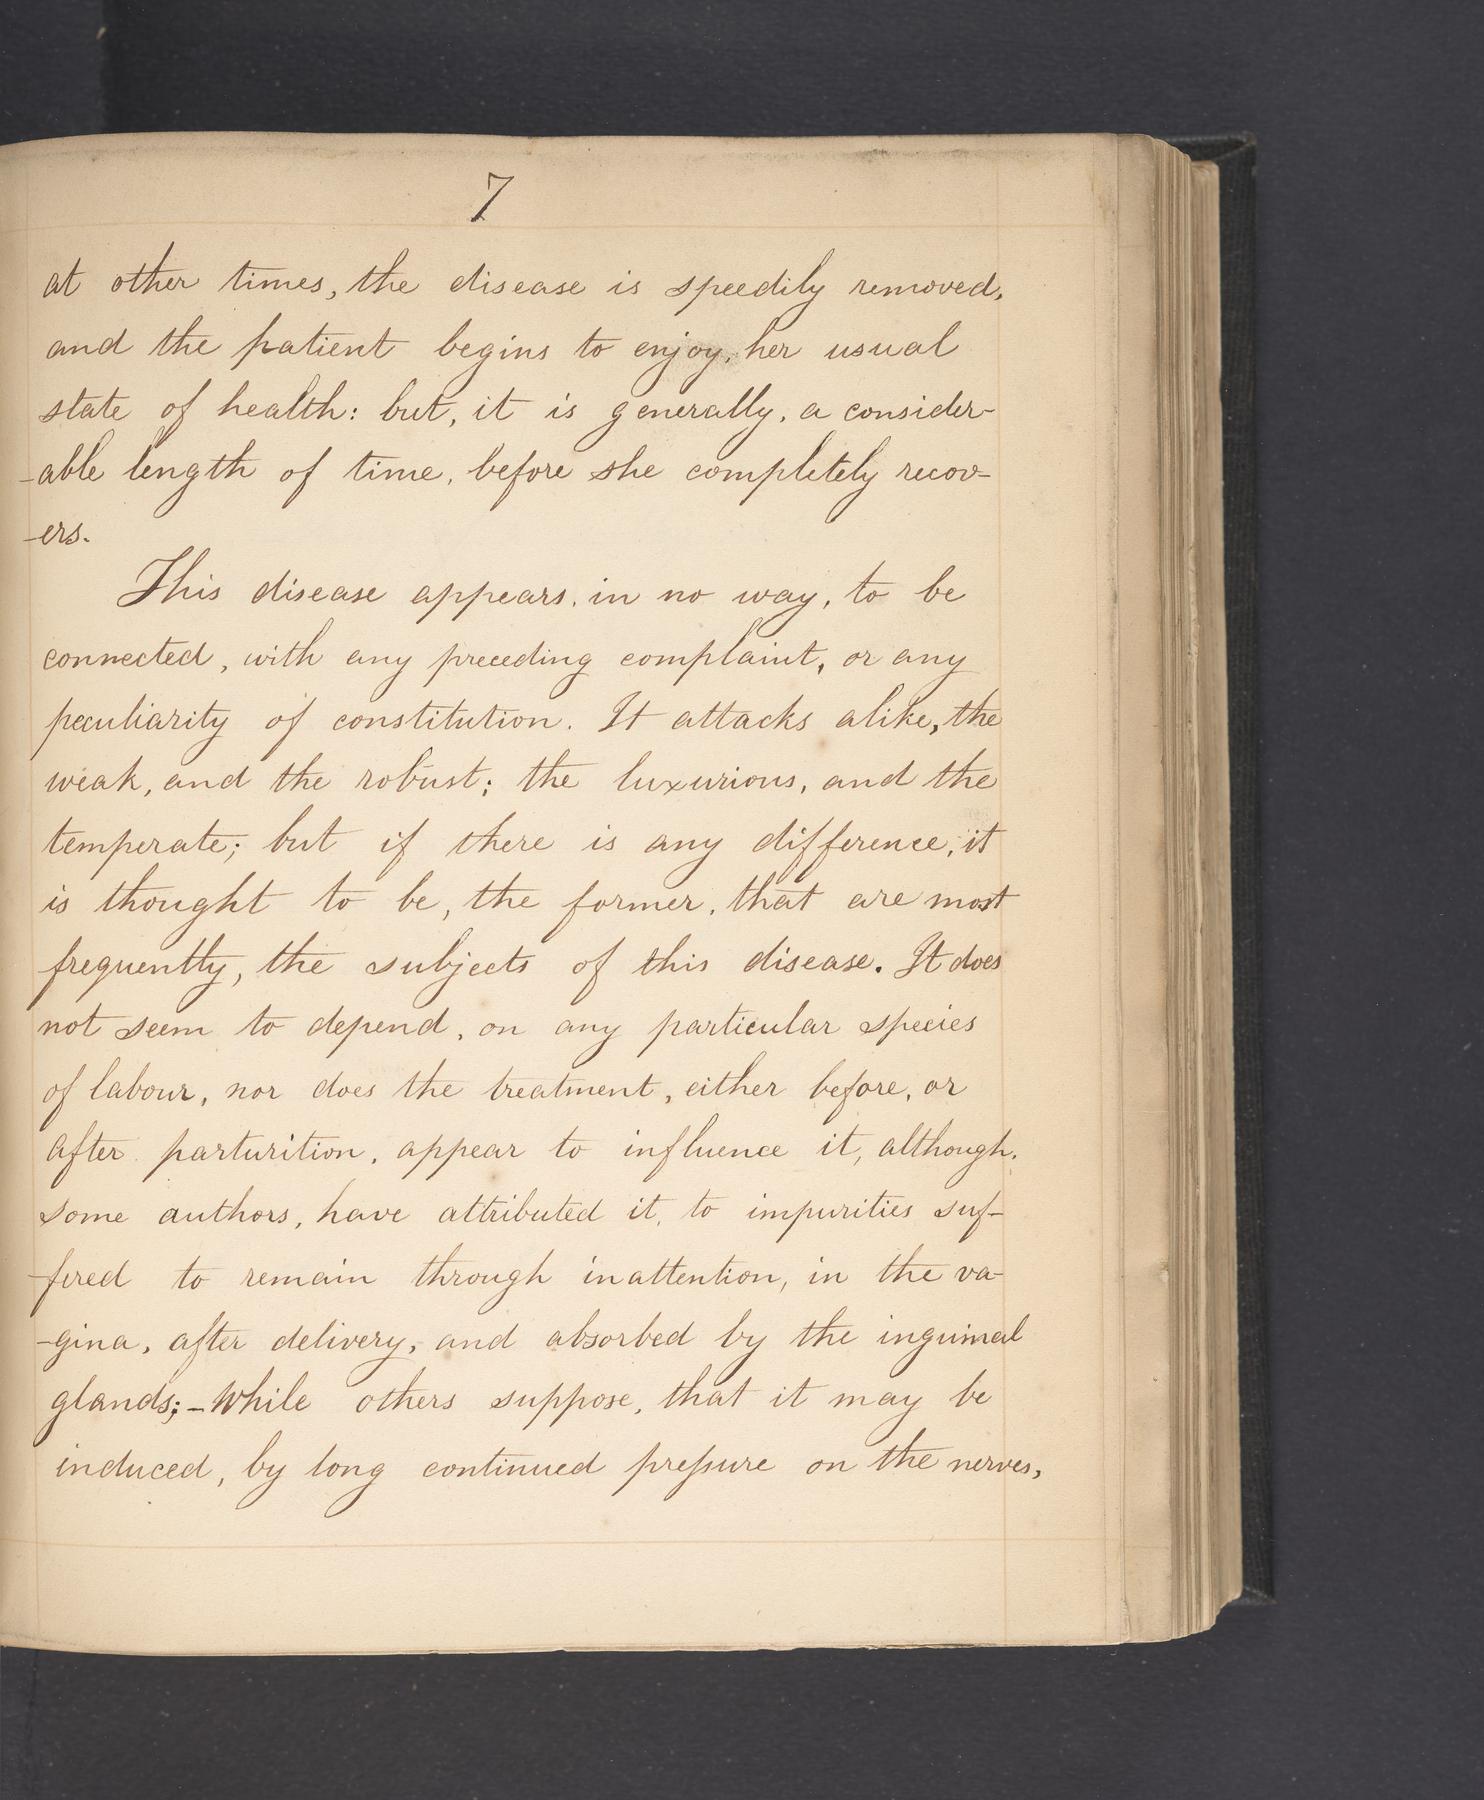 7
at other times, the disease is speedily removed,
and the patient begins to enjoy, her usual
state of health: but, it is generally, a consider-
-able length of time, before she completely recov-
-ers.
This disease appears, in no way, to be
connected, with any preceding complaint, or any
peculiarity of constitution. It attacks alike, the
weak, and the robust; the luxurious, and the
temperate; but if there is any difference, it
is thought to be, the former, that are most
frequently, the subjects of this disease. It does
not seem to depend, on any particular species
of labour, nor does the treatment, either before, or
after parturition, appear to influence it, although,
some authors, have attributed it, to impurities suf-
-fered to remain through inattention, in the va-
-gina, after delivery, and absorbed by the inguinal
glands; - While others suppose, that it may be
induced, by long continued preſsure on the nerves,